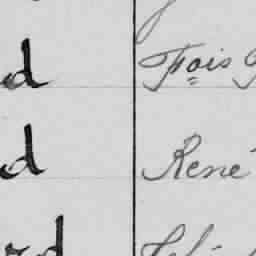 d Fois
d René
rd